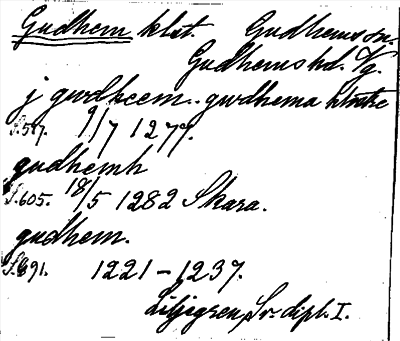 Gudhem klst. Gudhems sn.
Gudhems hd. Vg.
j gwdheem.. gwdhema klostre
S. 587. 9/7 1277.
gudhemh
S. 605. 18/5 1282 Skara.
gudhem.
S. 691. 1221-1237.
Liljegren, Sv. dipl. I.